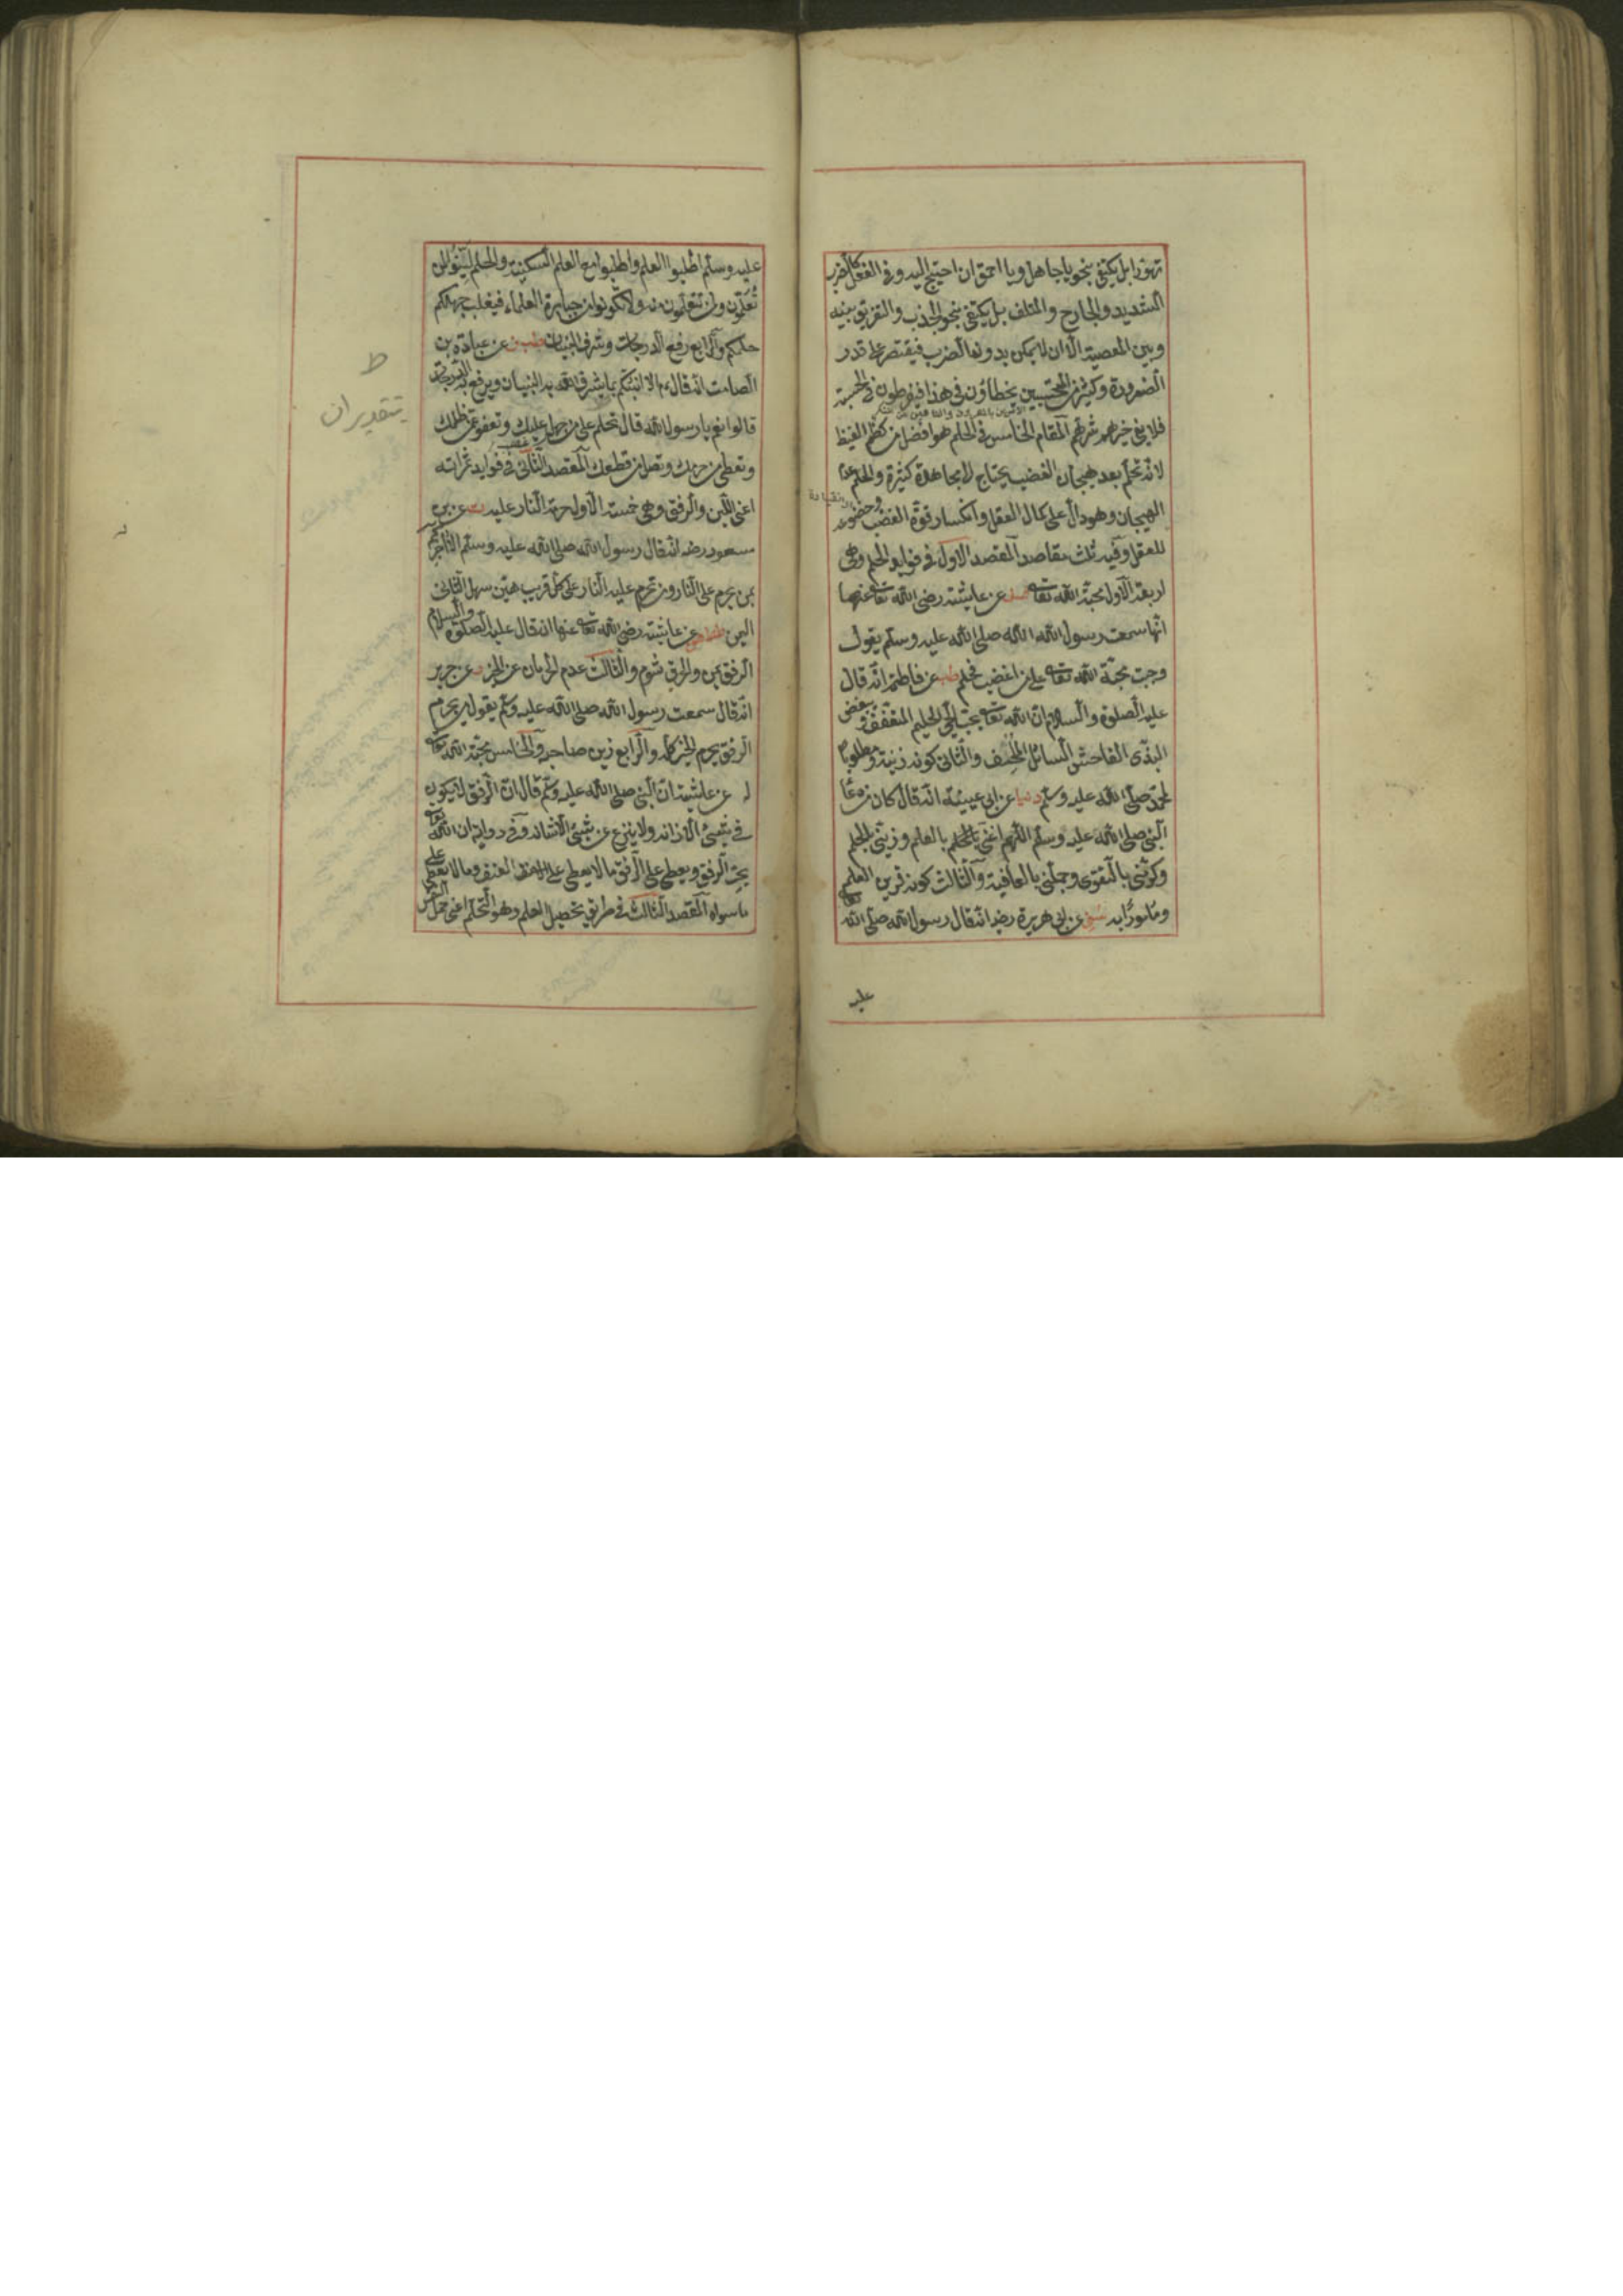 تهورا بل يكتفي بنحو يا جاهل ويا احمق ان احتيج اليه وفي الفعل كالضرب
الشديد والجارح والمتلف بل يكتفي بنحو الجذب والتفريق بينه
وبين المعصية الا ان لا يمكن بدونها الضرب فيقتصر على قدر
الضرورة وكثير من المحتسبين يخطاؤن في هذا فيفرطون في الحسبة
فلا يفي خيرهم شرهم المقام الخامس في الحلم هو افضل من كظم الغيظ
لانه تحلم بعد هيجان الغضب يحتاج الى مجاهدة كثيرة والحلم عدم
الهيجان وهو دال على كمال العقل وانكسار قوة الغضب وخضوعه
للعقل وفيه ثلث مقاصد المقصد الاول في فوايد الحلم وهي
اربعة الاول محبة الله تعالى عن عايشة رضي الله تعالى عنها
انها سمعت رسول الله صلى الله عليه وسلم يقول
وجبت محبة الله تعالى على من اغضب فحلم طب عن فاطمة انه قال
عليه الصلوة والسلام ان الله تعالى يحب الحيي الحليم المتعفف ويبغض
البذي الفاحش السائل الملحف والثاني كونه زينة ومطلوبا
لمحمد صلى الله عليه وسلم دنيا عن ابي عيينة انه قال كان من دعا
النبي صلى الله عليه وسلم اللهم اغنني بالعلم وزيني بالحلم
وكرمني بالتقوى وجملني بالعافية والثالث كونه قرين العلم
ومامورا به سني عن ابي هريرة رضه انه قال رسول الله صلى الله تعالى
عليه
عليه وسلم اطلبوا العلم واطلبوا مع العلم السكينة والحلم لينوا لمن
تعلمون ولمن تتعلمون منه ولا تكونوا من جبابرة العلماء فيغلب جهلكم
حلمكم والرابع رفع الدرجات وشرف البنيان طب عن عبادة بن
الصامت انه قال الا انبئكم بما يشرف الله به البنيان ويرفع به الدرجات
قالوا نعم يا رسول الله قال تحلم على من جهل عليك وتعفو عمن ظلمك
وتعطي من حرمك وتصل من قطعك المقصد الثاني في فوايد ثمراته
اعني اللين والرفق وهي خمسة الاول حرمة النار عليه ت عن بن
مسعود رضه انه قال رسول الله صلى الله عليه وسلم الا اخبركم
بمن يحرم على النار ومن تحرم عليه النار على كل قريب هين سهل الثاني
اليمن عن عايشة رضي الله تعالى عنها انه قال عليه الصلوة والسلام
الرفق يمن والخرق شوم والثالث عدم الحرمان عن الخير م عن جرير
انه قال سمعت رسول الله صلى الله عليه وسلم يقول من يحرم
الرفق يحرم الخير كله والرابع زين صاحبه والخامس محبة الله تعالى
له عن عايشة ان النبي صلى الله عليه وسلم قال ان الرفق لا يكون
في شيئ الا زانه ولا ينزع عن شيئ الا شانه وفي رواية ان الله تعالى
يحب الرفق ويعطي على الرفق ما لا يعطي على العنف وما لا يعطي على
ما سواه المقصد الثالث في طريق تحصيل الحلم وهو التحلم اعني حمل النفس
ط
بتقديران